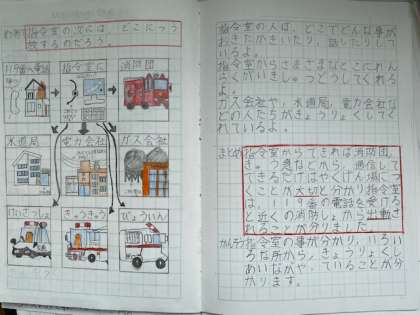 めあて 指令室の次には、どこにつう
報するのだろう。
119番へ電話 指令室 消防団
水道局 電力会社 ガス会社
けいさつしょ きゅうきゅう びょういん
指令室の人は、どこでどんな事が
おこったかきいたり、話したりして
いるよ。
指令室からさまざまなとこにれん
らくがいき、しゅつどうしてくれる
よ。
ガス会社や、水道局、電力会社な
どの人たちがきょうりょくしてく
れているよ。
まとめ 指令室からできれば消防団、
きゅう急などから、通信して
できるだけはやくけん場につ
くことが大切と分かり指令室
は、119番の電話を受ける
と近くの消防しょから出動さ
れることが分りました。
かんそう 指令室の事が分かり、いろい
ろな所から、きょうりょくし
あいながや、ていることが分
かります。